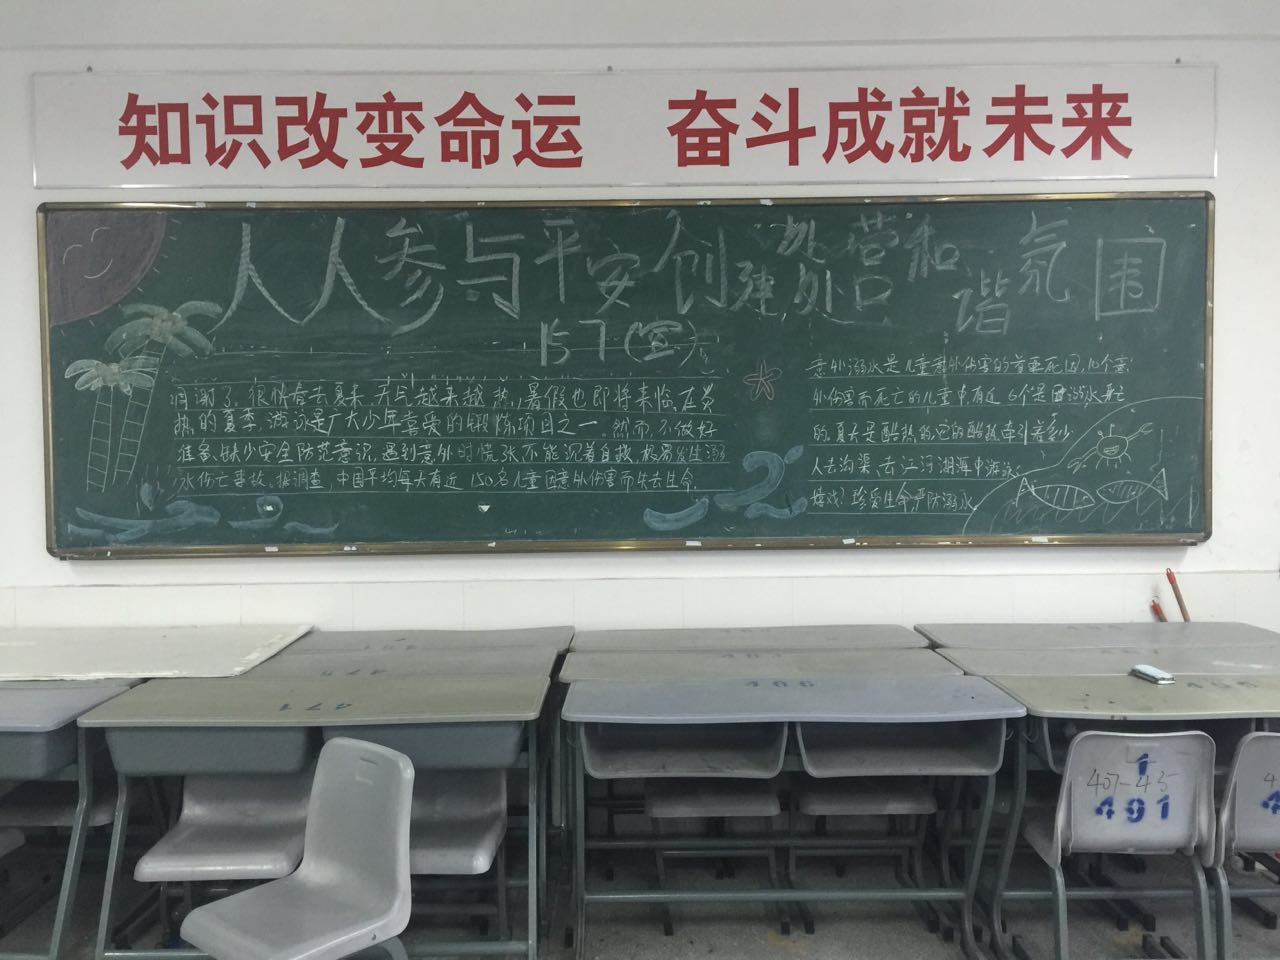 知识改变命运 奋斗成就未来
人人参与平安创建处处营口和谐氛围
157(宣)
谢了。很快春去夏来,天气越来越热,暑假也即将来临,在炎
热的夏季,游泳是广大少年喜爱的锻炼项目之一。然而,不做好
准备,缺少安全防范意识,遇到意外时慌张不能沉着自救,极易发生溺
水伤亡事故。据调查,中国平均每天有近150名儿童因意外伤害而失去生命
意外溺水是儿童意外伤害的首要死因,10个意
外伤害而死亡的儿童中有近6个是因溺水死亡
的。夏天是酷热的,它的酷热牵引着多少
人去沟渠、去江河湖海中游泳
嬉戏?珍爱生命,严防溺水。
481
475
471
481
486
486
1
407-45
491